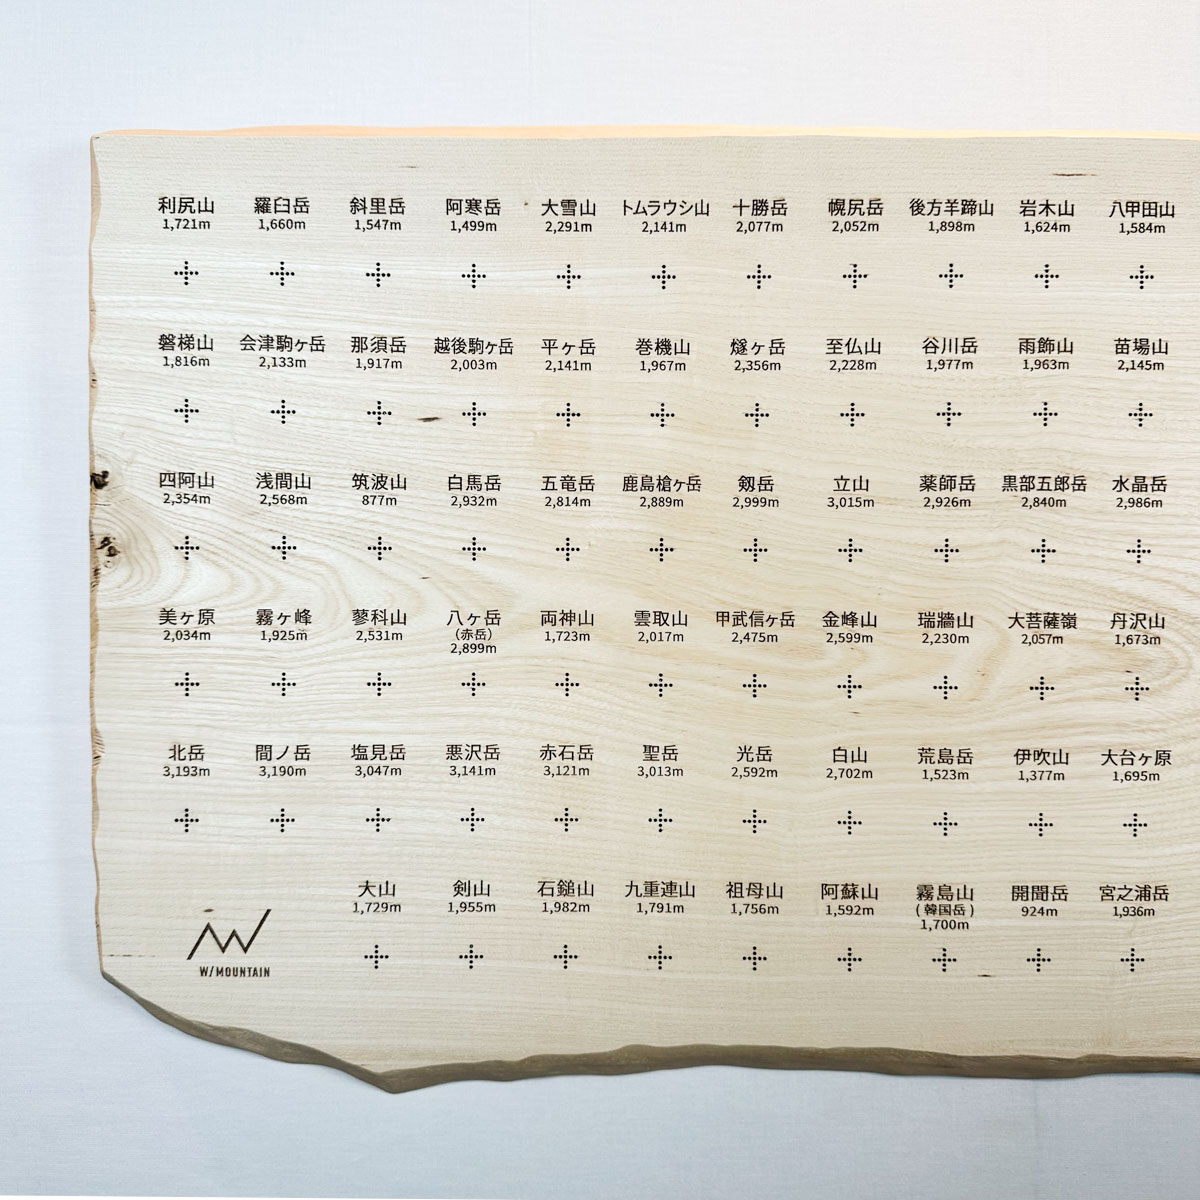 利尻山 羅臼岳 斜里岳 阿寒岳 大雪山 トムラウシ山 十勝岳 幌尻岳 後方羊蹄山 岩木山 八甲田山
1,721m 1,660m 1,547m 1,499m 2,291m 2,141m 2,077m 2,052m 1,898m 1,624m 1,584m
磐梯山 会津駒ヶ岳 那須岳 越後駒ヶ岳 平ヶ岳 巻機山 燧ヶ岳 至仏山 谷川岳 雨飾山 苗場山
1,816m 2,133m 1,917m 2,003m 2,141m 1,967m 2,356m 2,228m 1,977m 1,963m 2,145m
四阿山 浅間山 筑波山 白馬岳 五竜岳 鹿島槍ヶ岳 剱岳 立山 薬師岳 黒部五郎岳 水晶岳
2,354m 2,568m 877m 2,932m 2,814m 2,889m 2,999m 3,015m 2,926m 2,840m 2,986m
美ヶ原 霧ヶ峰 蓼科山 八ヶ岳 両神山 雲取山 甲武信ヶ岳 金峰山 瑞牆山 大菩薩嶺 丹沢山
2,034m 1,925m 2,531m (赤岳) 1,723m 2,017m 2,475m 2,599m 2,230m 2,057m 1,673m
2,899m
北岳 間ノ岳 塩見岳 悪沢岳 赤石岳 聖岳 光岳 白山 荒島岳 伊吹山 大台ヶ原
3,193m 3,190m 3,047m 3,141m 3,121m 3,013m 2,592m 2,702m 1,523m 1,377m 1,695m
大山 剣山 石鎚山 九重連山 祖母山 阿蘇山 霧島山 開聞岳 宮之浦岳
1,729m 1,955m 1,982m 1,791m 1,756m 1,592m (韓国岳) 924m 1,936m
1,700m
W/MOUNTAIN